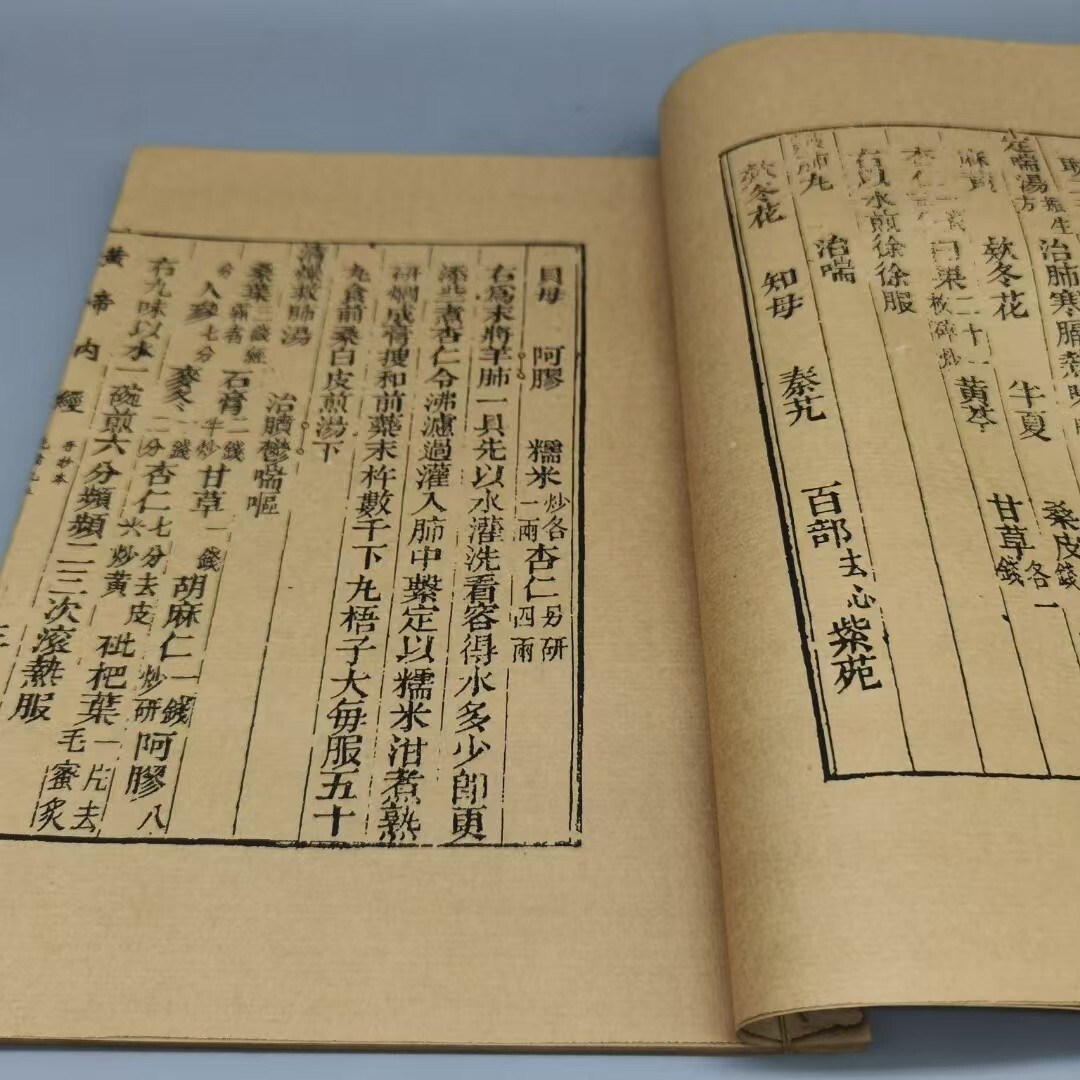 定喘湯方 治肺寒膈熱
麻黄 欵冬花 半夏 桑皮
杏仁 白菓二十一枚碎炒 黄芩 甘草各一錢
右以水煎徐徐服
肺丸 治喘
欵冬花 知母 秦艽 百部去心 紫苑
貝母 阿膠 糯米炒各一兩 杏仁另研四兩
右爲末將羊肺一具先以水灌洗看容得水多少即更
添些煮杏仁令沸濾過灌入肺中繫定以糯米泔煮熟
研爛成膏搜和前藥末杵數千下丸梧子大每服五十
丸食前桑白皮煎湯下
清燥救肺湯 治膹鬱喘嘔
桑葉三錢經霜者 石膏二錢半炒 甘草一錢 胡麻仁一錢炒研 阿膠八
分 人參七分 麥冬一錢二分 杏仁七分去皮尖炒黄 枇杷葉一片去毛蜜炙
右九味以水一碗煎六分頻頻二三次滾熱服
黄帝内經